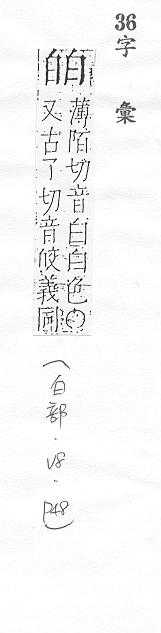 36字彙
薄陌切音白白色
又古了切音佼義同
（白部．V8．P48）